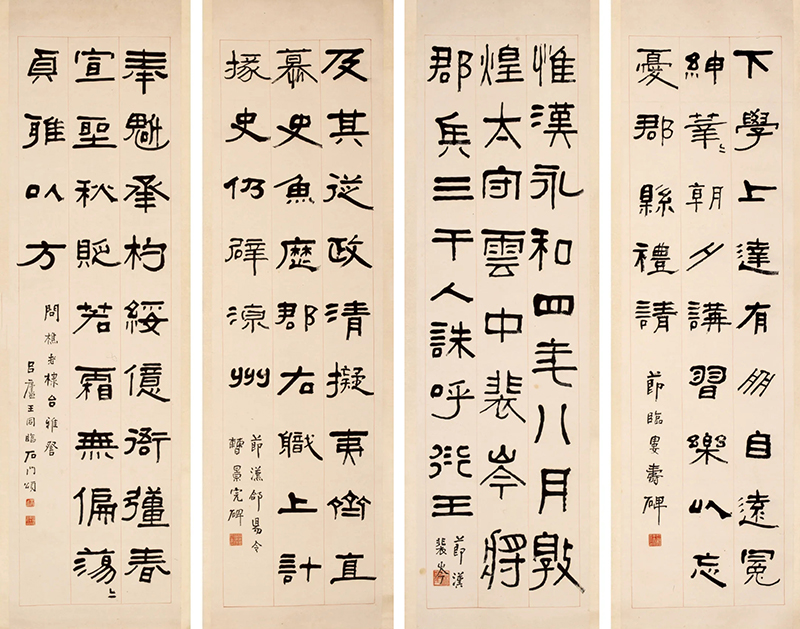 下學上達有朋自遠冕
紳莘〻朝夕講習樂以忘
憂郡縣禮請
節臨婁壽碑
惟漢永和四年八月敦
煌太守雲中裴岑將
郡兵三千人誅呼衍王
節漢
裴岑
及其從政清擬夷齊直
慕史魚歷郡右職上計
掾史仍辟涼州
節漢郃昜令
曹景完碑
奉魁承杓綏億衙彊春
宣聖秋貶若霜無偏蕩〻
貞雅以方
問樵老棣台雅詧
呂廬王同臨石門頌